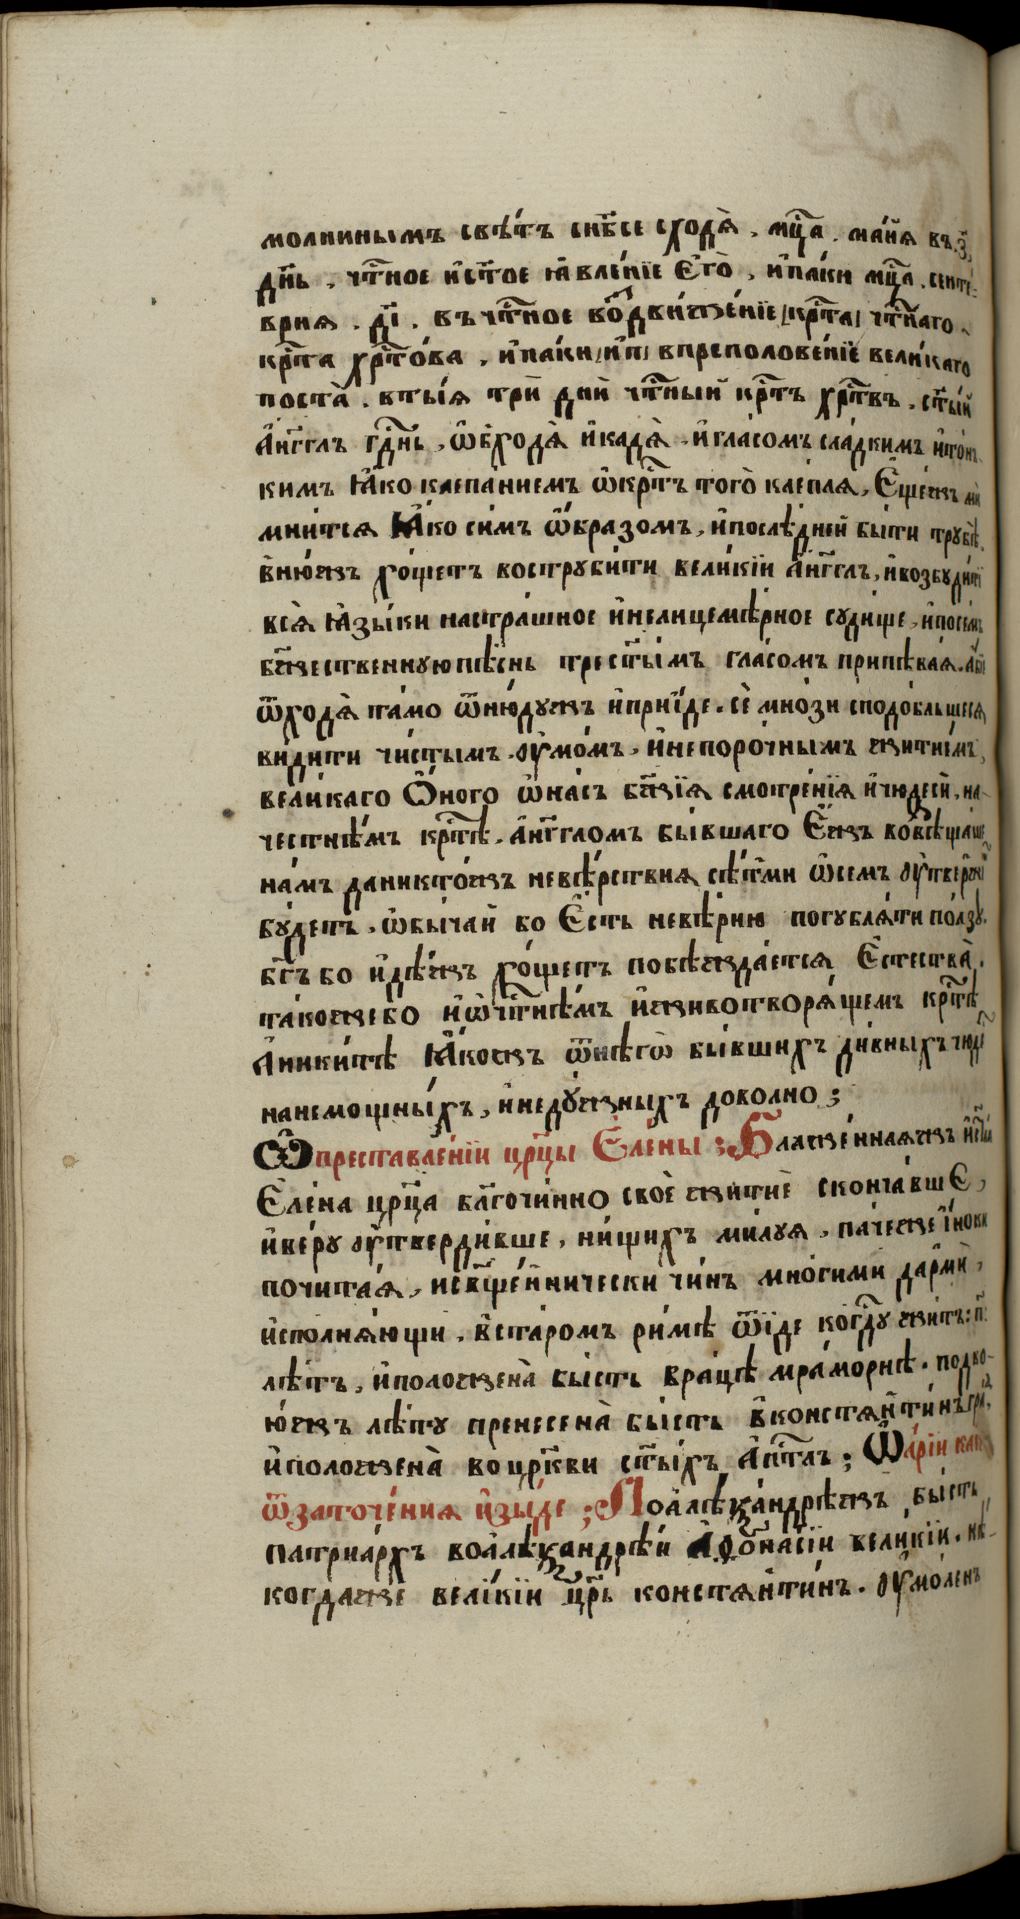 молнинымъ свѣ́тъ снб҃се сходѧ̀ . мц҃а . ма́йѧ въ .з҃.
дн҃ь . чтⷭ҇ное и҆ст҃ое ꙗ҆вле́нїе є҆го̀ , и҆па́ки мц҃а . сентѣ-
врїѧ . д҃і . въчтⷭ҇ное воздви́женїе крⷭ҇та чтⷭ҇наго
крⷭ҇та хрⷭ҇то́ва . и҆паки и҆п впреполове́нїе вели́каго
поста̀ . втыѧ три̑ дни̑ чтⷭ҇ный крⷭ҇тъ хрⷭ҇твъ . ст҃ы́й
а҆́нг҃глъ гдⷭ҇нь , ѡ҆бходѧ̀ и҆кадѧ̀ . и҆гла́сомъ сла́дкимъ и҆то́н-
кимъ ꙗ҆́ко клепа́нием ѡ҆крⷭ҇тъ того̀ клепля , Є҆ще́жъ мѝ
мни́тсѧ Ꙗ҆́ко симъ ѡ҆́бразомъ , и҆послѣ́дней бы́ти трубѣ̀ .
вню́жъ хо́щетъ воструби́ти вели́кїи а҆́нг҃глъ , и҆возбуди́ти
всѧ̀ ꙗ҆зы́ки настра́шное и҆нелицемѣ́рное суди́ще , и҆посе́мъ
бж҃ественную пѣ́снь трест҃ы́мъ гла́сомъ припѣва́ѧ . а҆бїе
ѿходѧ̀ та́мо ѿню́дуже и҆прїи́де . сѐ мно́зи сподо́бльшесѧ
ви́дити чи́стымъ . оу҆мо́мъ . и҆непоро́чнымъ жити́емъ ,
вели́каго Ѻ҆́ного ѡ҆на́съ бж҃їѧ смотре́нїѧ и҆чюдесѝ . на-
честнѣ́мъ крⷭ҇тѣ̀ . а҆́нг҃гломъ бы́вшаго Є҆́жъ возвѣща́ше
на́мъ даникто́жъ невѣ́рствиѧ сѣтьми ѡ҆семъ оу҆твержⷣенъ
бу́детъ . ѡ҆бы́чай бо Є҆́сть невѣ́рию погублѧ́ти по́лзу .
бг҃ъ бо и҆дѣ́жъ хо́щетъ побѣжда́етсѧ Є҆стества̀ .
та́коже бо и҆ѡ҆чтⷭ҇нѣ́мъ и҆животворѧ́щемъ крⷭ҇тѣ̀
А҆ники́тѣ Ꙗ҆́кожъ ѿнѣгѡ̀ бы́вшихъ ди́вныхъ чюдⷭ҇
нанемощны́хъ , и҆неду́жныхъ дово́лно ;
Ѽпреставле́нїи црⷭ҇цы Є҆ле́ны ; Блаже́ннаѧжъ и҆ст҃а́ѧ
Є҆ле́на црⷭ҇ца благочи́нно своѐ житиѐ сконча́вшЄ ,
и҆ве́ру оу҆тверди́вше , ни́щихъ ми́луѧ , па́чеже і҆́ноки
почита́ѧ , и҆свѧще́ннически чи́нъ мно́гими дарми̑ ,
и҆сполнѧ́ющи . в҆ста́ромъ ри́мѣ ѿи́де ко́гдⷭ҇у житъ : п҃
лѣ́тъ , и҆положена̀ бы́сть вра́цѣ мра́морнѣ . подво-
ю́жъ лѣ́ту пренесена̀ бы́сть в҆констѧнти́нъ гра́дъ ,
и҆положена̀ воцр҃кви ст҃ы́хъ а҆пⷭ҇тлъ ; Ѽа҆́рїи ка́кѡ
ѿзаточе́ниѧ и҆зы́де ; Поа҆леѯа́ндрѣжъ бы́сть
патриа́рхъ воа҆леѯа́ндрѣи А҆фона́сїи вели́кїи . нѣ-
когдаже вели́кїи цр҃ь констѧнти́нъ . оу҆мо́ленъ